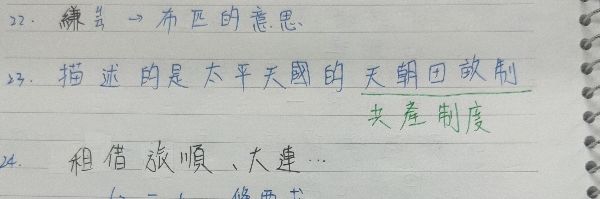 22. 縑 → 布匹的意思
23. 描述的是太平天國的天朝田畝制
共產制度
24. 租借旅順、大連…